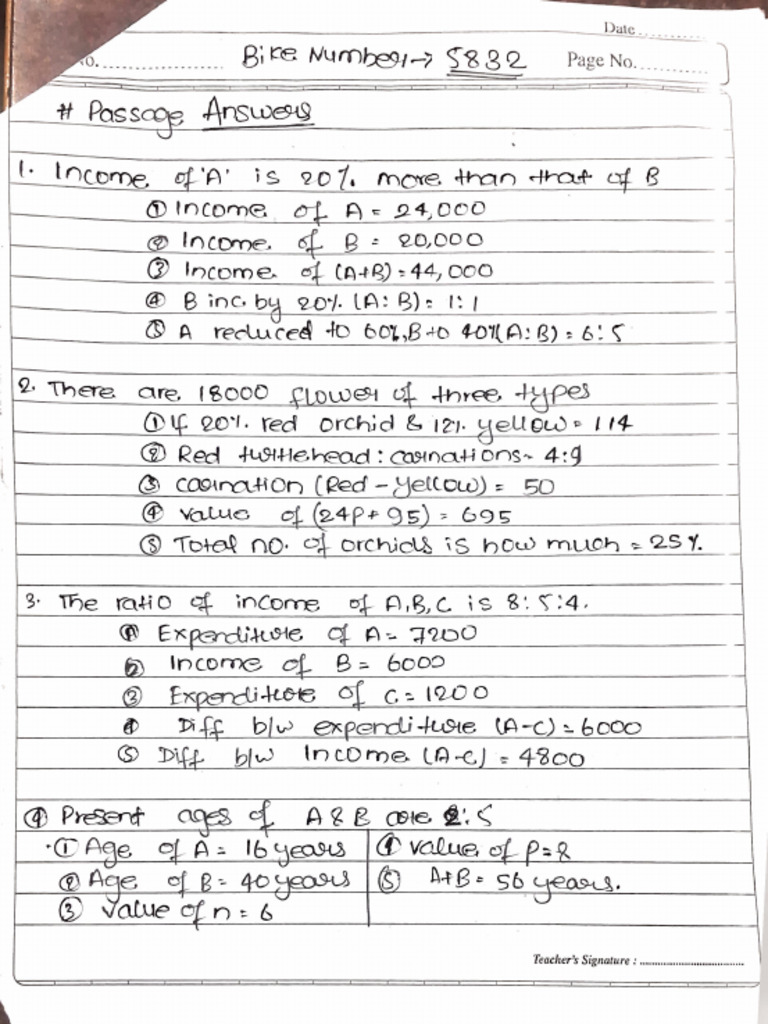 Date..........
No. .................... Bike Number → 5832 Page No. ...........
# Passage Answers
1. Income of 'A' is 20% more than that of B
① Income of A = 24,000
② Income of B = 20,000
③ Income of (A+B) = 44,000
④ B inc. by 20% (A:B) = 1:1
⑤ A reduced to 60%, B to 40% (A:B) = 6:5
2. There are 18000 flower of three types
① If 20% red orchid & 12% yellow = 114
② Red turtlehead : carnations - 4:9
③ carnation (Red - yellow) = 50
④ value of (24p + 95) = 695
⑤ Total no. of orchids is how much = 25%
3. The ratio of income of A,B,C is 8:5:4.
① Expenditure of A = 7200
② Income of B = 6000
③ Expenditure of C = 1200
④ Diff b/w expenditure (A-C) = 6000
⑤ Diff b/w Income (A-C) = 4800
④ Present ages of A & B are 2:5
① Age of A = 16 years ④ value of p = 8
② Age of B = 40 years ⑤ A+B = 56 years.
③ value of n = 6
Teacher's Signature : ..............................